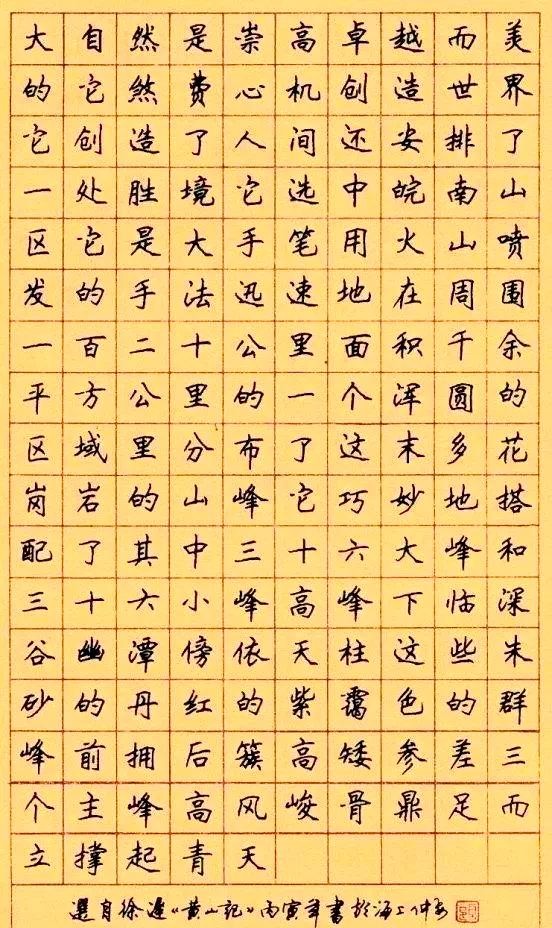 大自然是崇高卓越而美
的它煞费心机创造世界
它创造了人间还安排了
一处胜境它选中皖南山
区它是大手笔用火山喷
发的手法迅速地在周围
一百二十公里面积千余
平方公里的一个浑圆的
区域里分布了这末多花
岗岩的山峰它巧妙地搭
配了其中三十六大峰和
三十六小峰高峰下临深
谷幽潭傍依天柱这些朱
砂的丹红的紫霭色的群
峰前拥后簇高矮参差三
个主峰高风峻骨鼎足而
立撑起青天
選自徐遲《黄山記》丙寅年書於海上仲